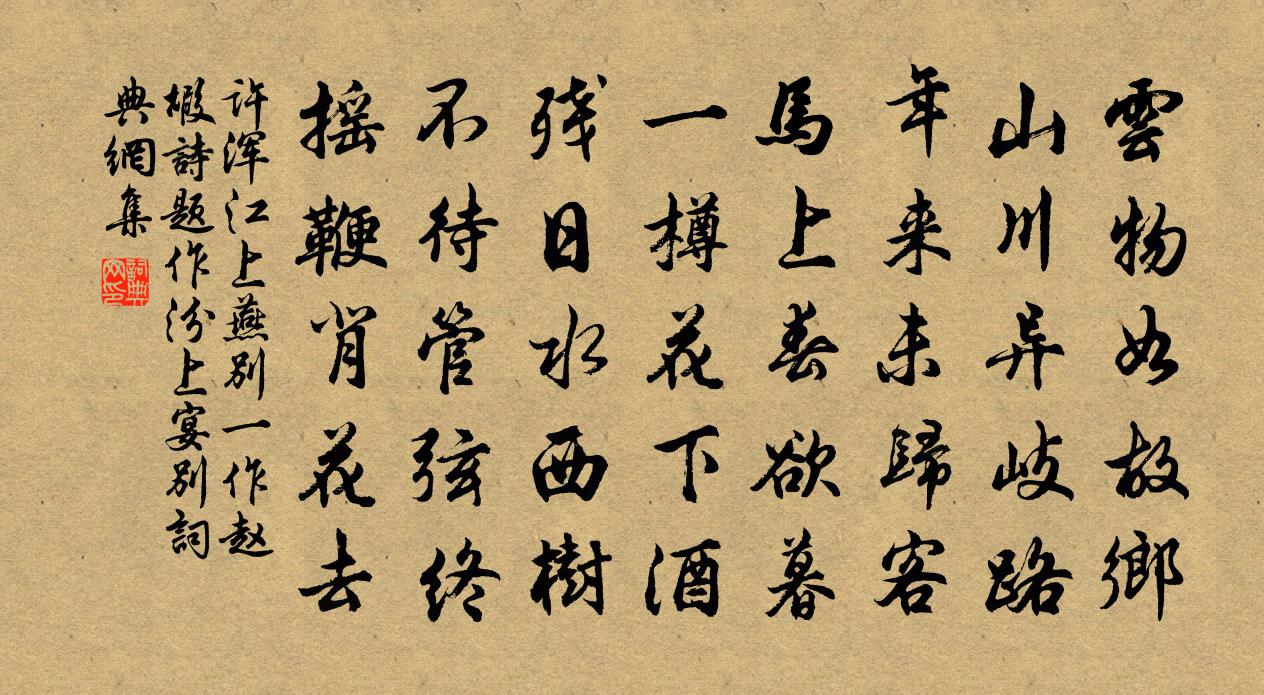 雲物如故鄉
山川异岐路
年来未歸客
馬上春欲暮
一樽花下酒
残日水西樹
不待管弦終
摇鞭背花去
许浑江上燕别一作赵
嘏詩题作汾上宴别詞
典網集
詞典网印